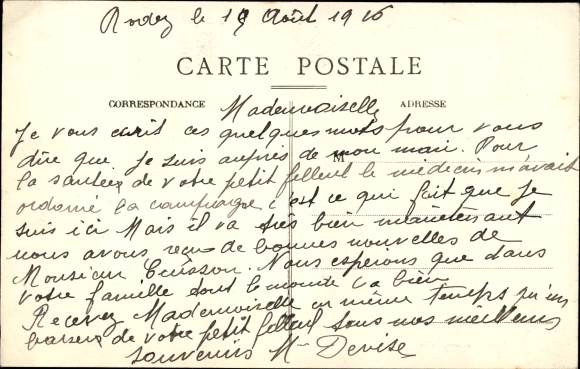 Rodez le 19 Août 1916
CARTE POSTALE
CORRESPONDANCE
ADRESSE
Mademoiselle
Je vous écrit ces quelques mots pour vous
dire que Je suis aupres de mon mari. Pour
M
la santée de votre petit filleul le médecin m'avait
ordonné la campagne c'est ce qui fait que Je
suis ici Mais il va très bien maintenant
nous avons reçu de bonnes nouvelles de
Monsieur. Nous esperions que dans
votre famille tout le monde va bien
Recevez Mademoiselle en même temps
baisers de votre petit filleul tous nos meilleurs
souvenirs Devise